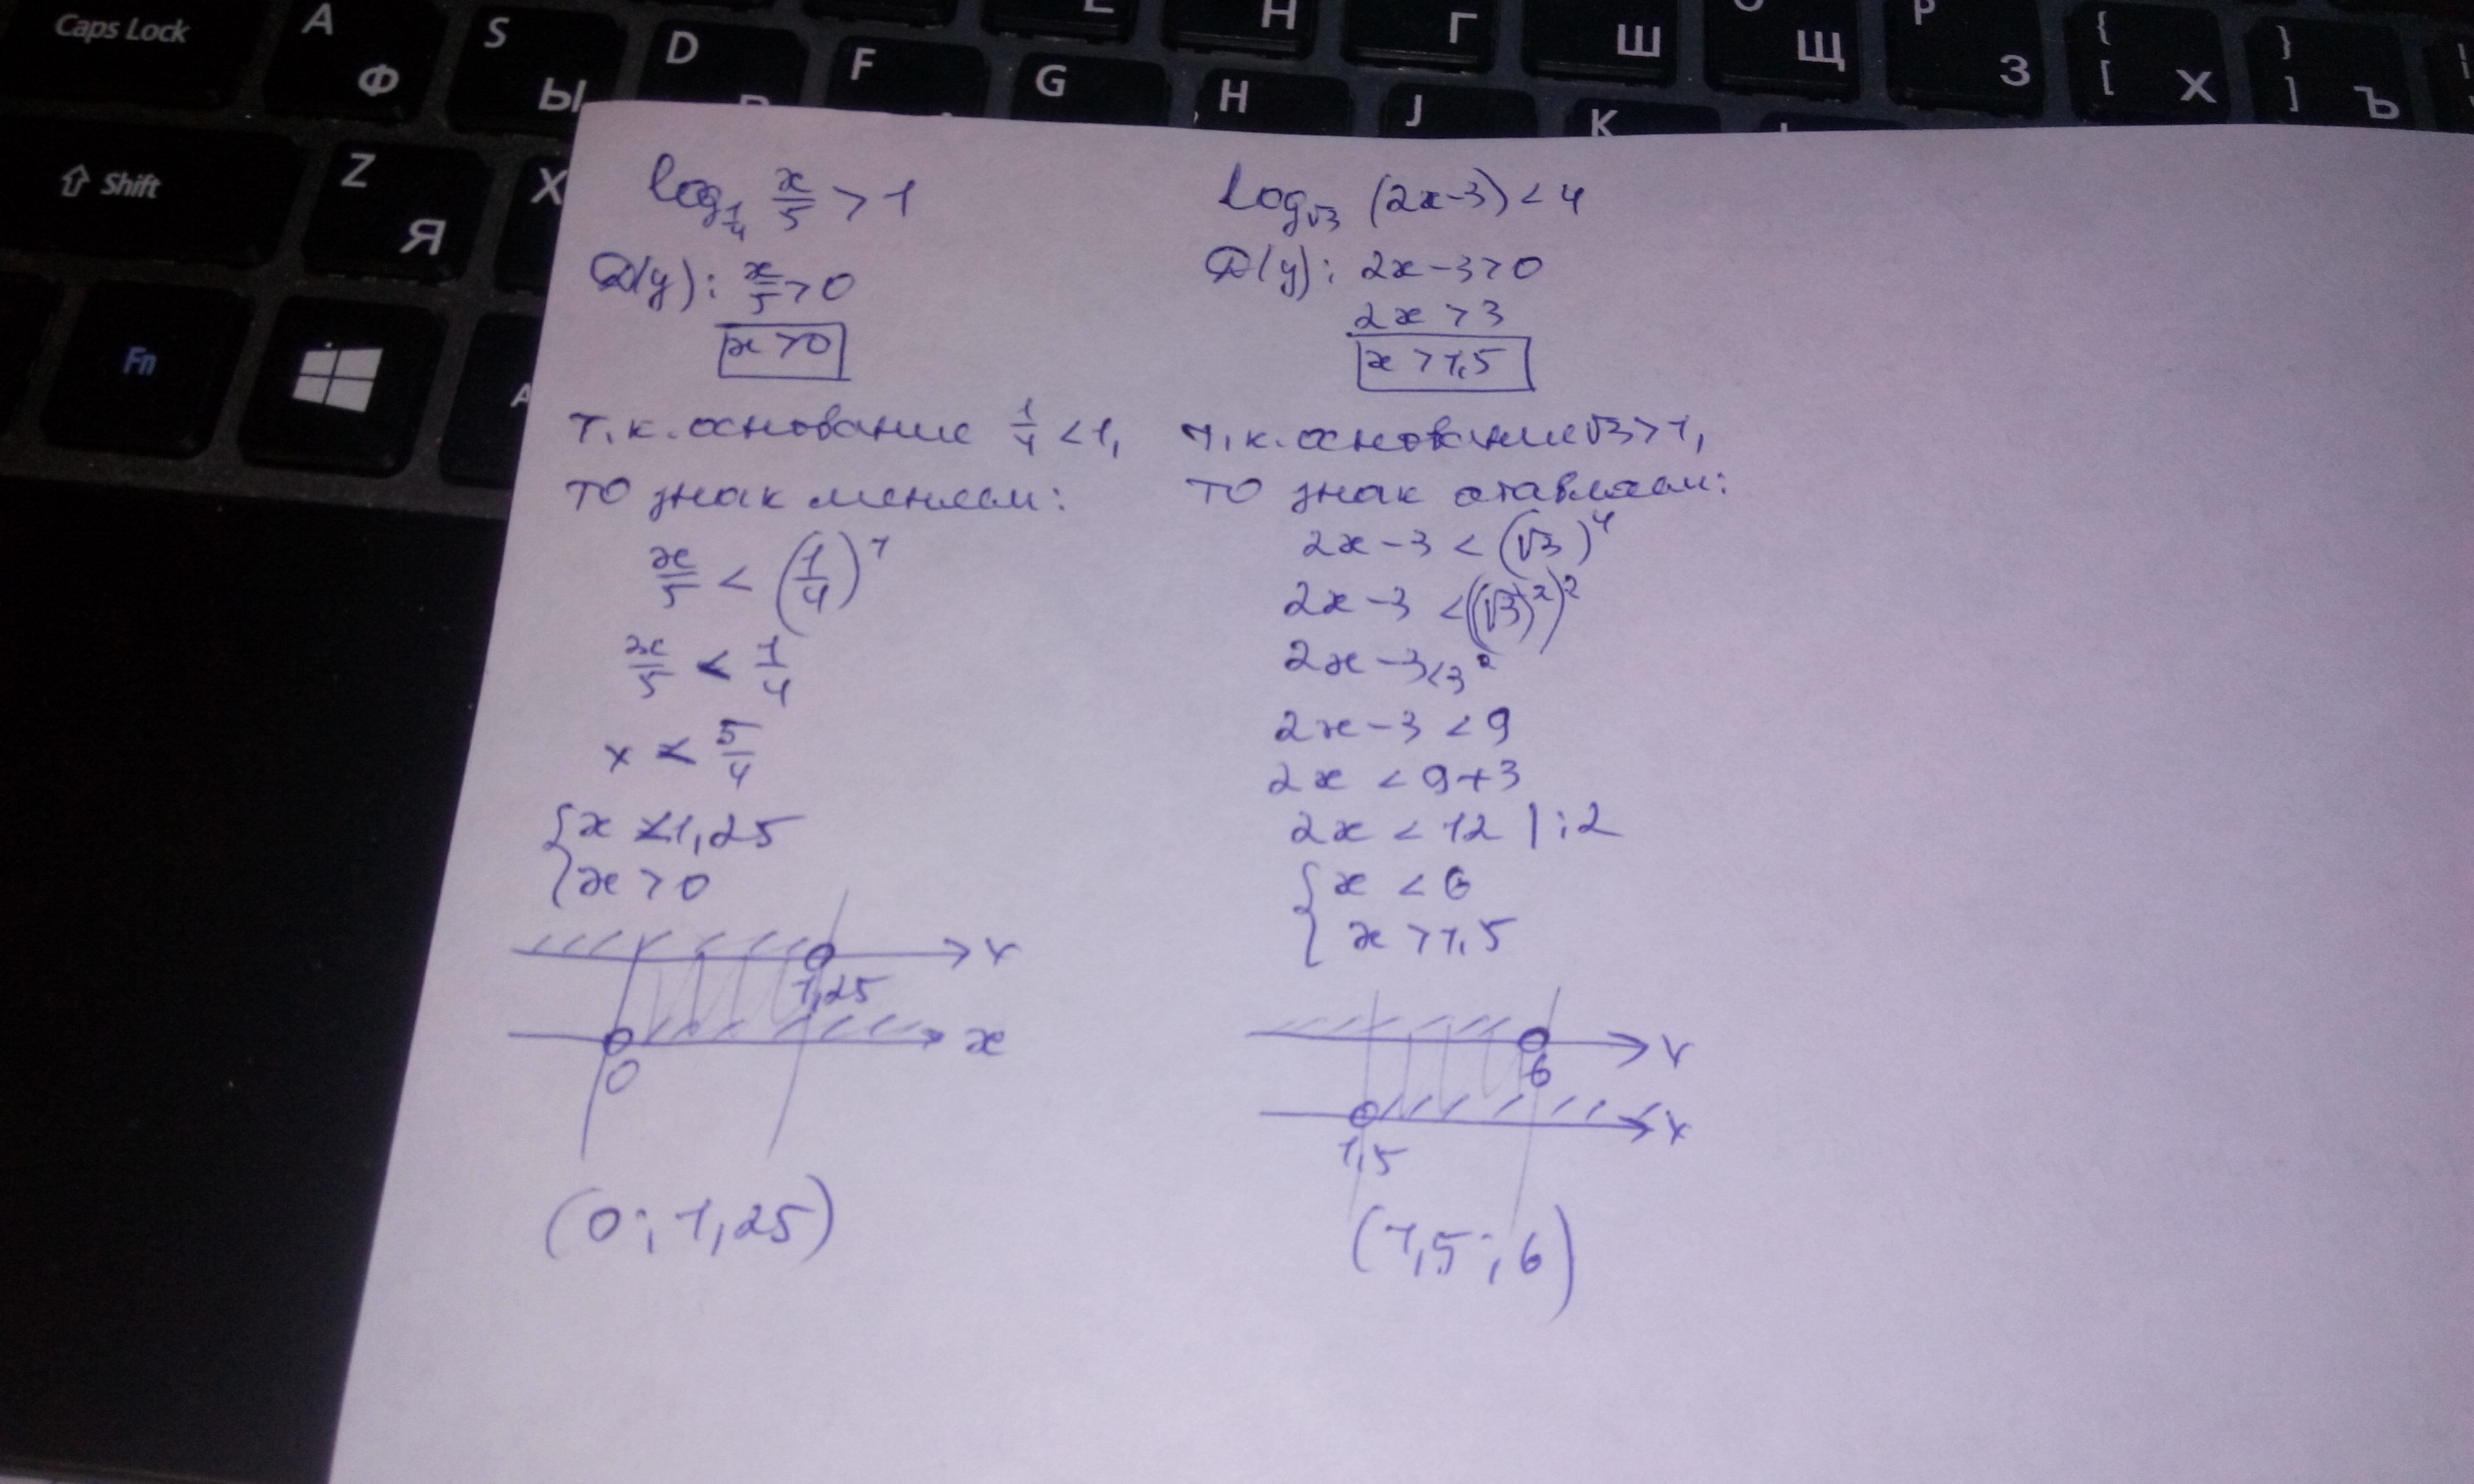 Caps Lock
A Ф
S Ы
D
F
G
H
J
K
Н
Г
Ш
Щ
P З
{ [ Х
} ] Ъ
Shift
Z Я
X
Fn
A
log_{1/4} x/5 > 1
D(y): x/5 > 0
x > 0
т.к. основание 1/4 < 1,
то знак меняем:
x/5 < (1/4)^1
x/5 < 1/4
x < 5/4
{ x < 1,25
x > 0
x
1,25
x
0
(0; 1,25)
log_{√3} (2x-3) < 4
D(y): 2x-3>0
2x > 3
x > 1,5
т.к. основание √3 > 1,
то знак отавляем:
2x-3 < (√3)^4
2x-3 < ((√3)^2)^2
2x-3 < 3^2
2x-3 < 9
2x < 9+3
2x < 12 | :2
{ x < 6
x > 1,5
x
6
x
1,5
(1,5; 6)